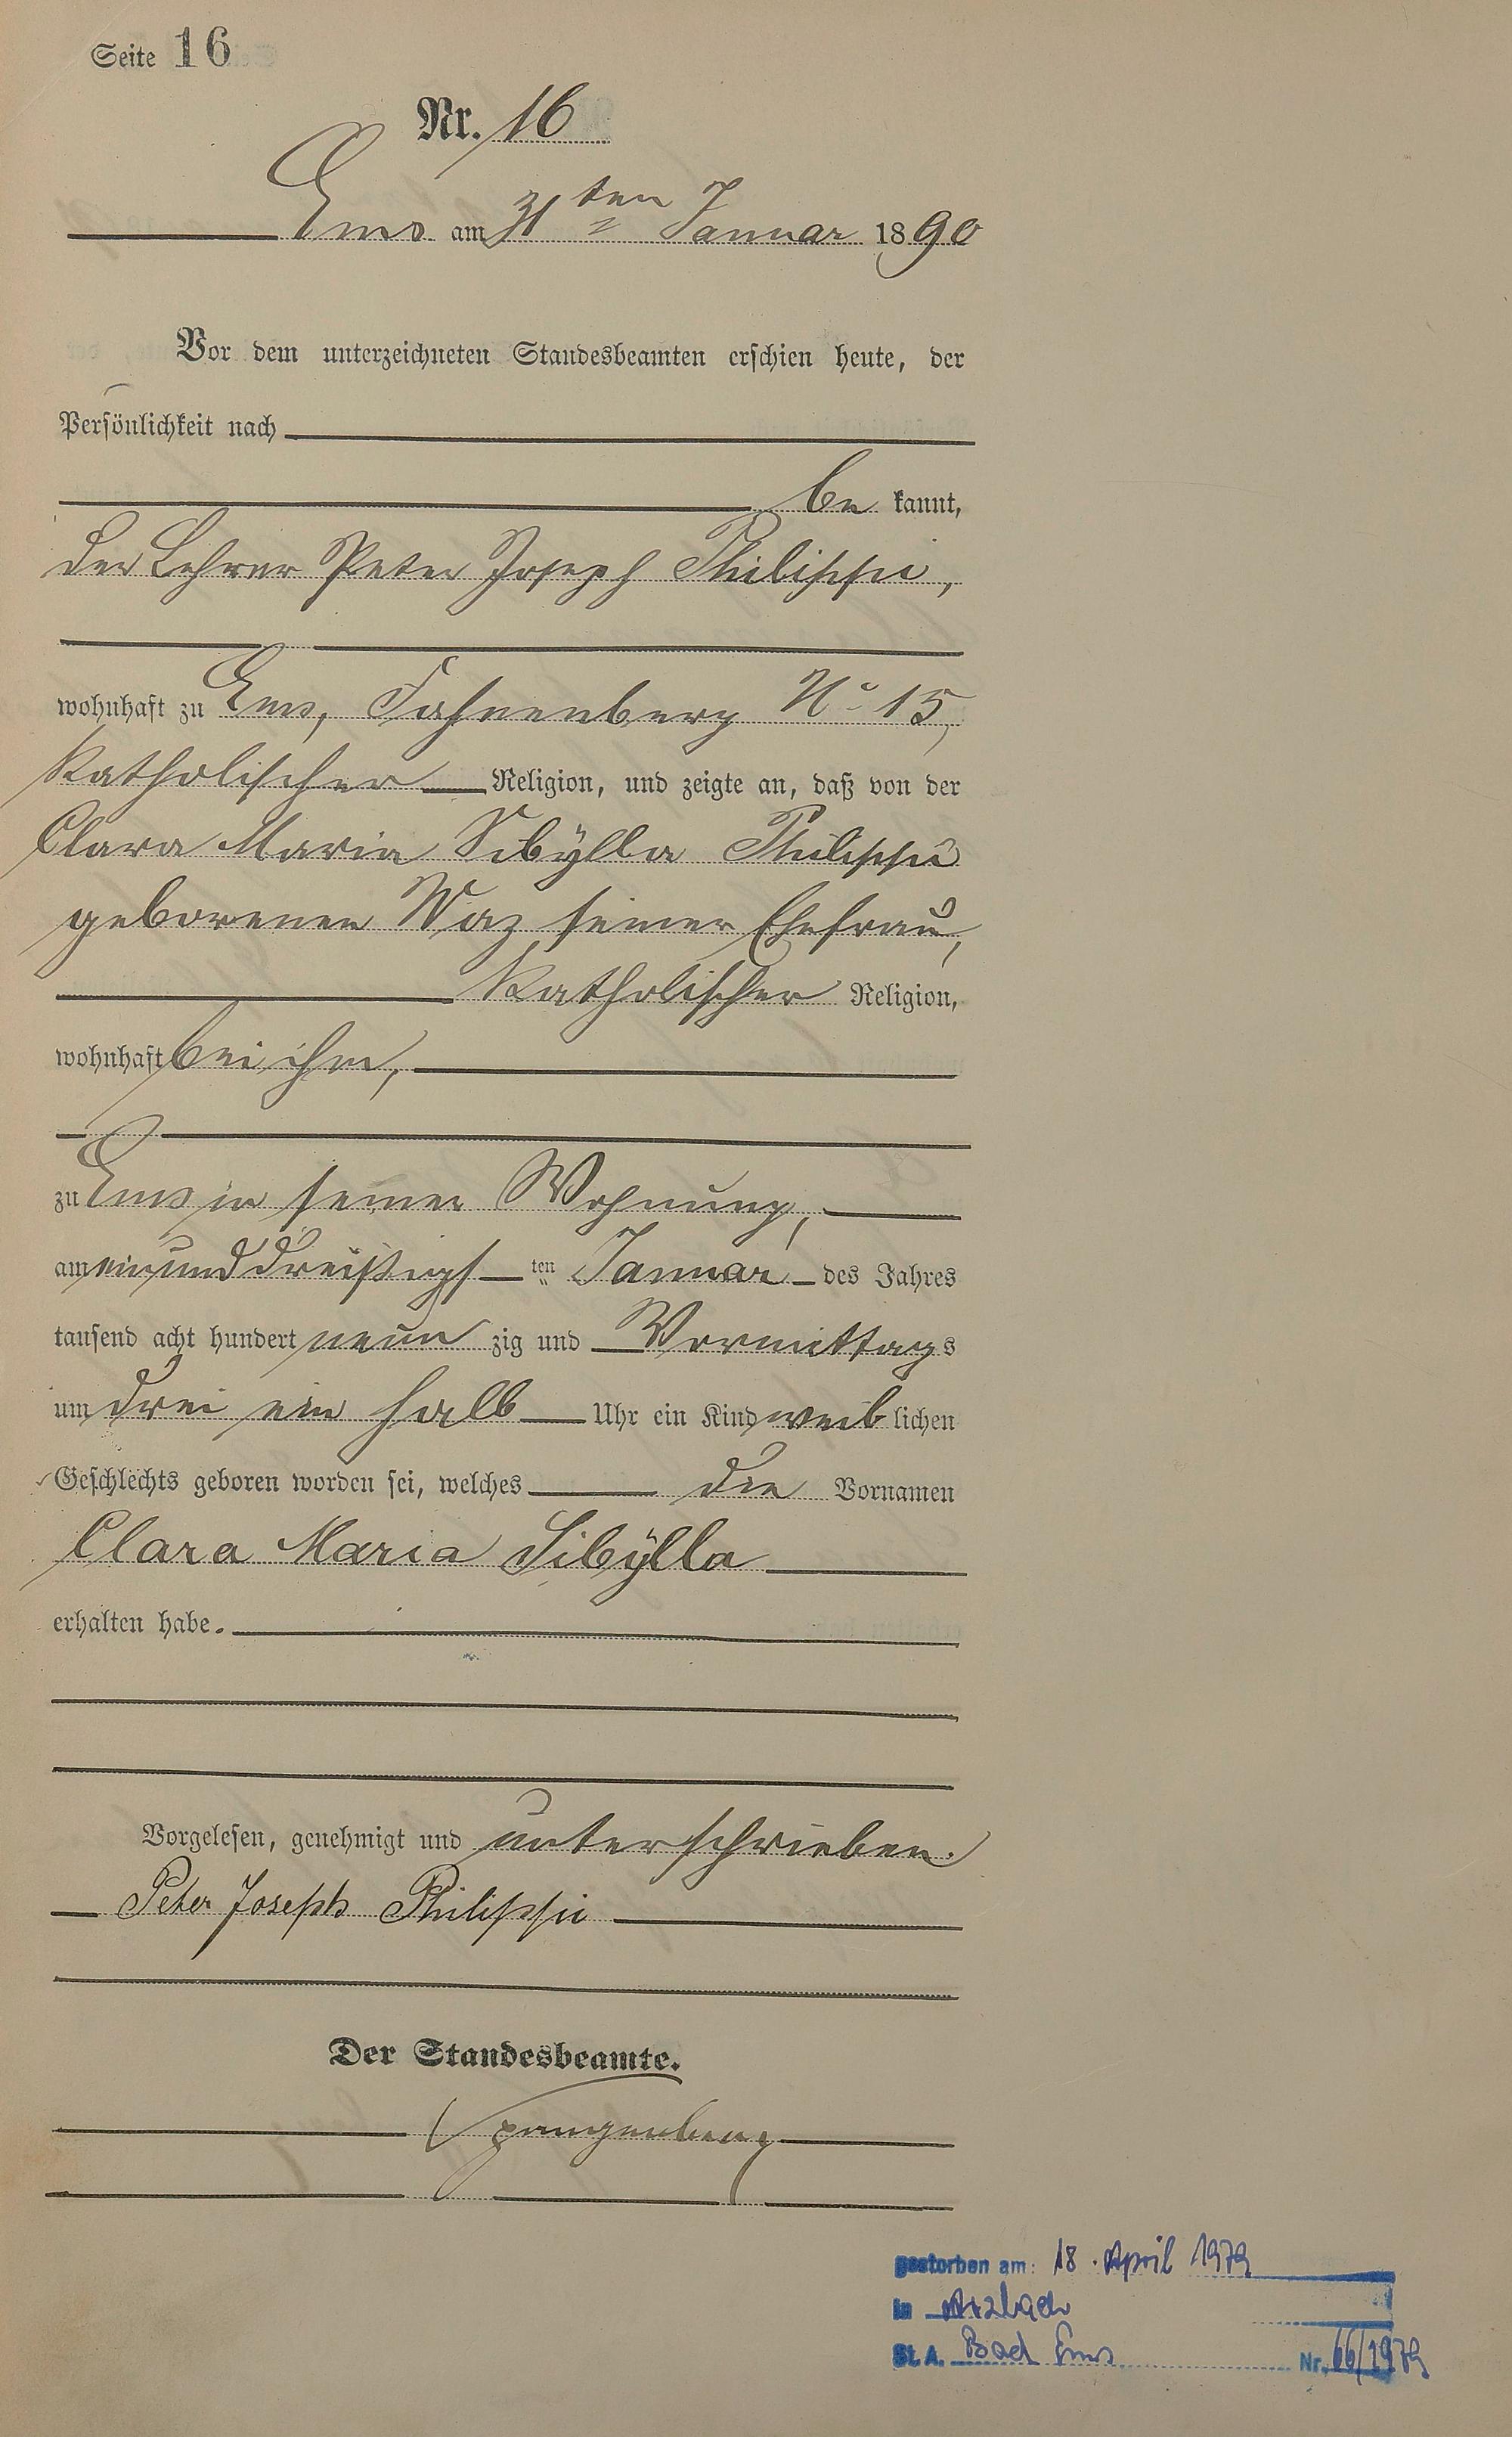 Seite 16
Nr. 16
Ems am 31ten Januar 1890
Vor dem unterzeichneten Standesbeamten erschien heute, der
Persönlichkeit nach
be kannt,
der Lehrer Peter Joseph Philippi,
wohnhaft zu Ems, Fahnenberg No 15,
katholischer Religion, und zeigte an, daß von der
Clara Maria Sibÿlla Philippi
geborenen Waz, seiner Ehefrau,
katholischer Religion,
wohnhaft bei ihm,
zu Ems in seiner Wohnung,
am einunddreißigsten Januar des Jahres
tausend acht hundert neunzig und Vormittags
um drei ein halb Uhr ein Kind weiblichen
Geschlechts geboren worden sei, welches die Vornamen
Clara Maria Sibÿlla
erhalten habe.
Vorgelesen, genehmigt und unterschrieben.
Peter Joseph Philippi
Der Standesbeamte.
Spangenberg
gestorben am: 18. April 1979
in Arzbach
St. A. Bad Ems Nr. 66/1979